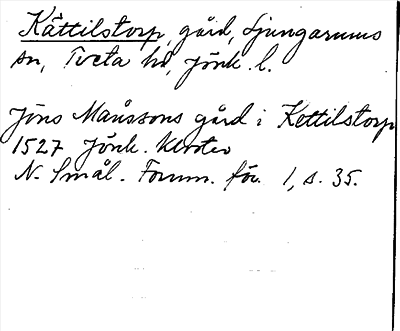 Kättilstorp, gård, Ljungarums
sn, Tveta hd, Jönk. l.
Jöns Månssons gård i Kettilstorp
1527 Jönk. kloster
N. Smål. Fornm. för. 1, s. 35.